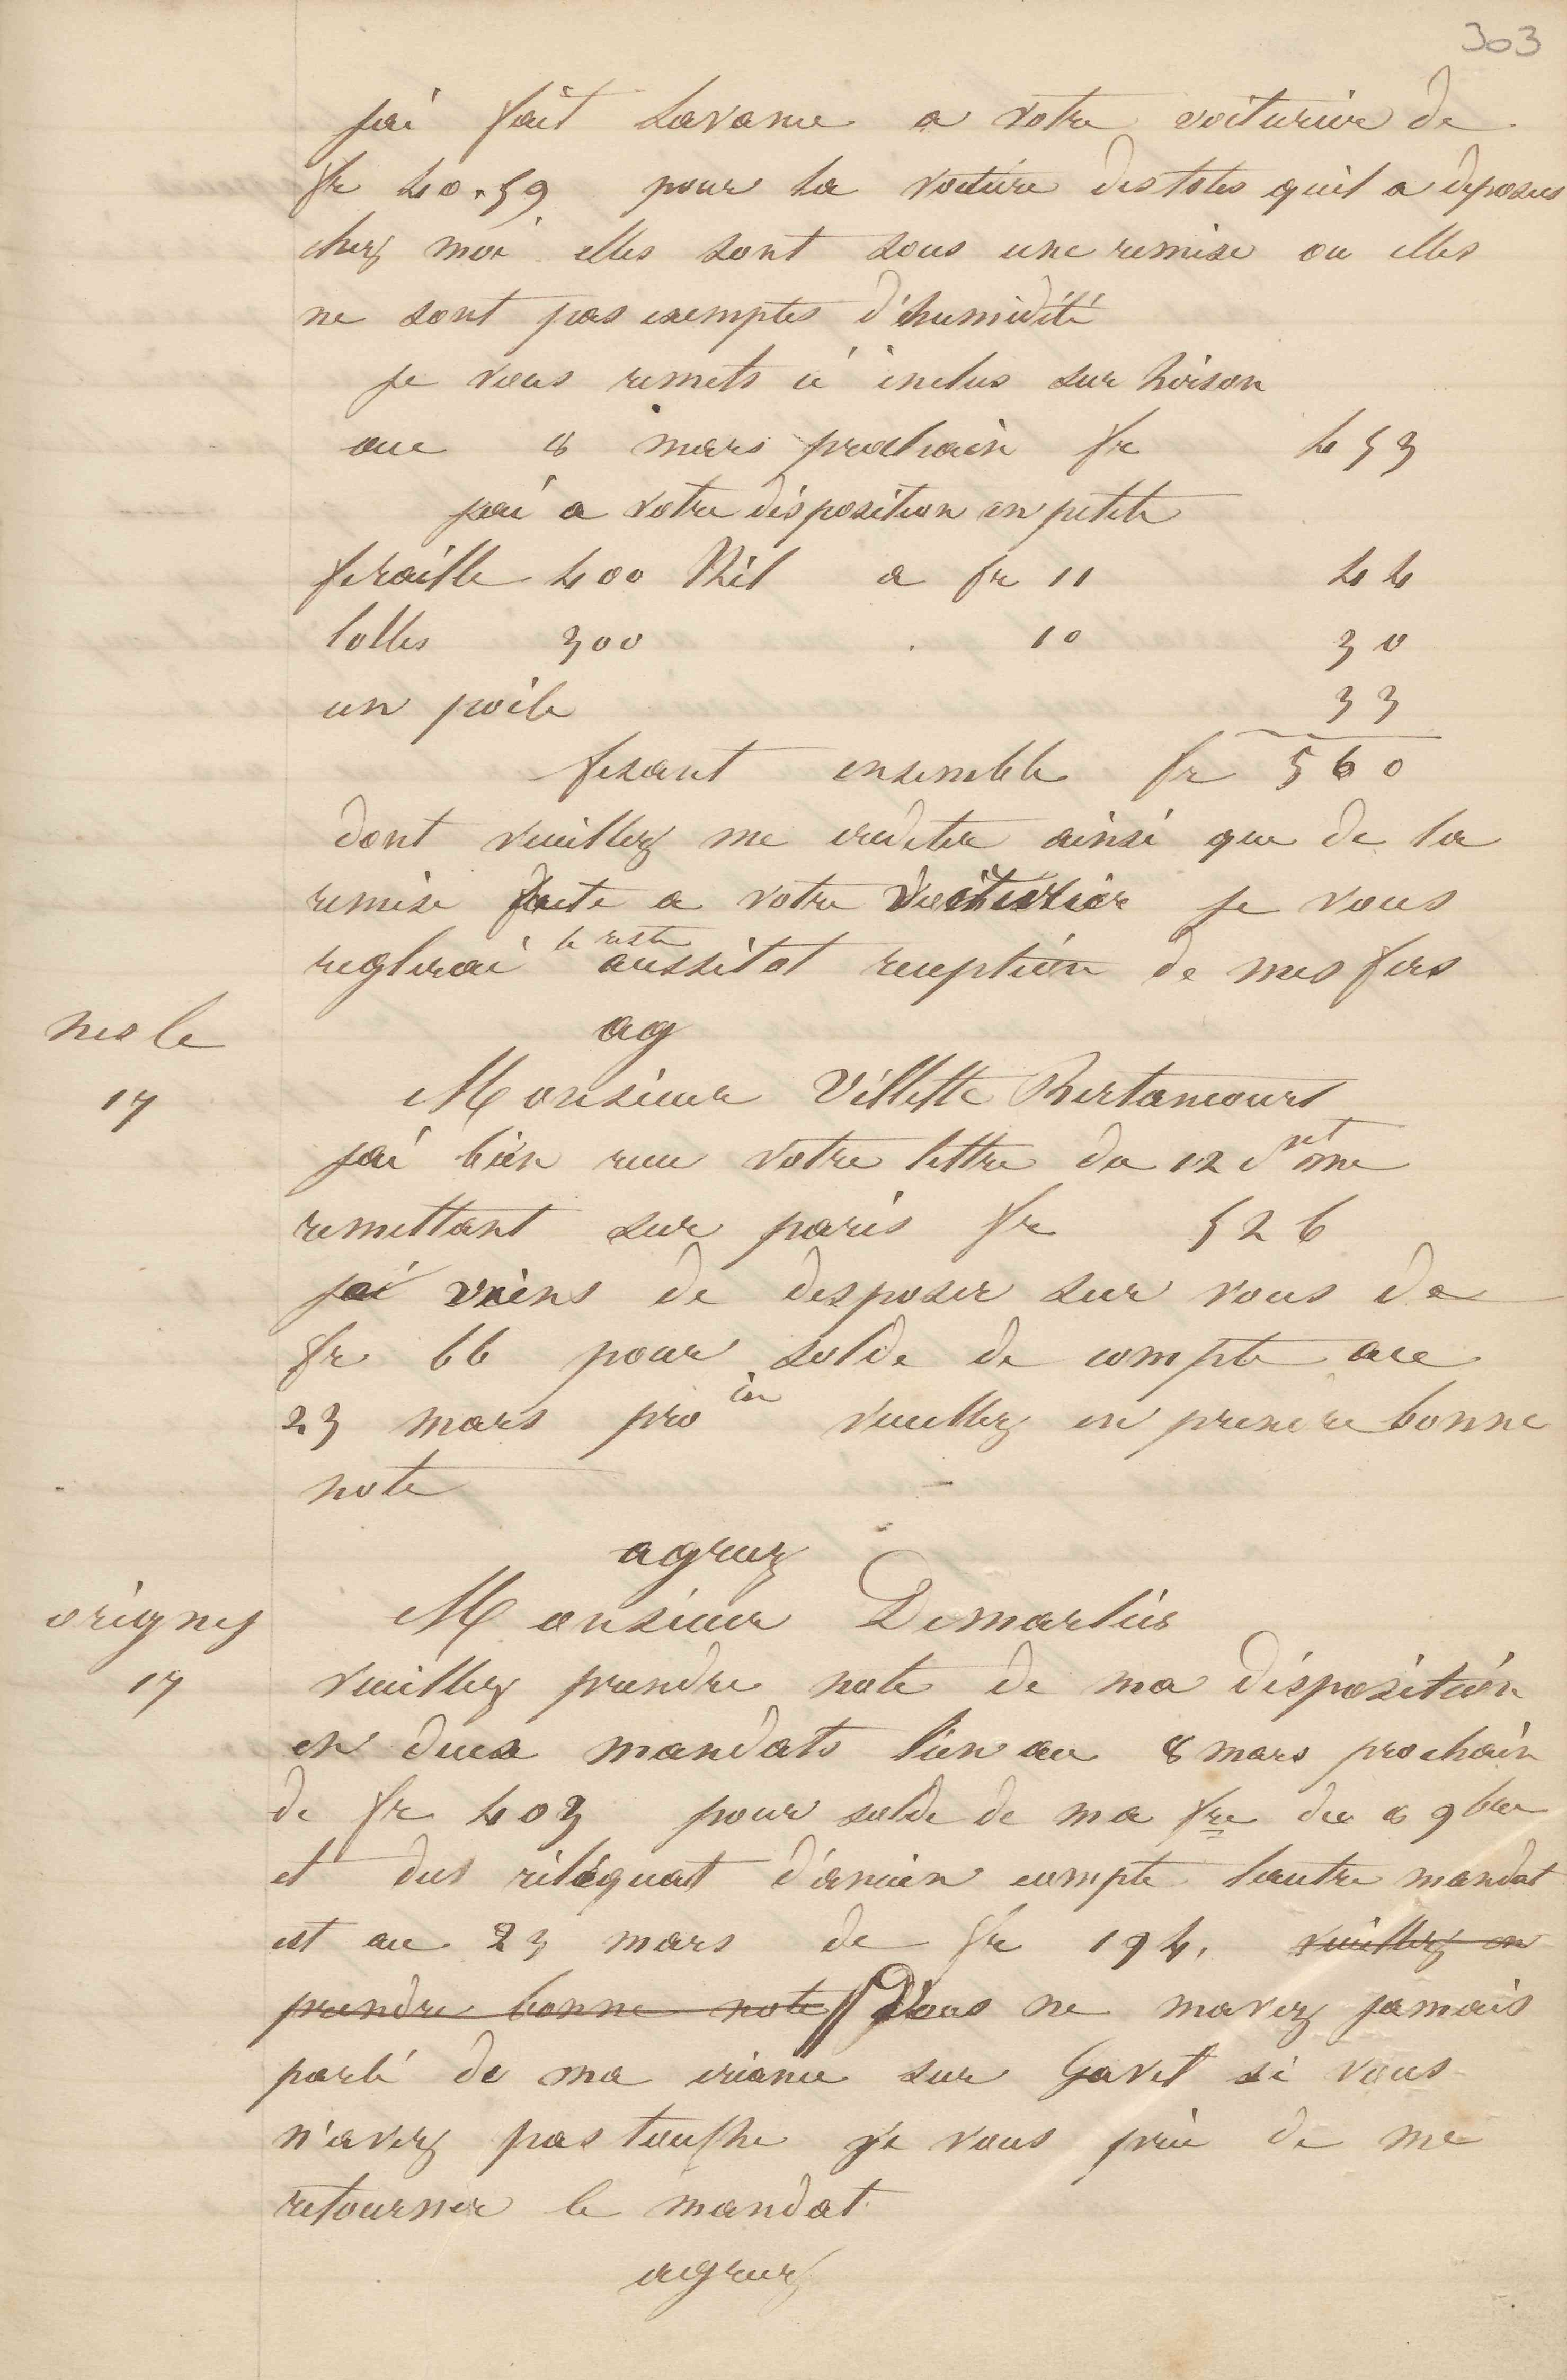 303
jai fait Lavance a votre voiturier de
fr 40.59 pour la voiture des toles quil a deposees
chez moi elles sont sous une remise ou elles
ne sont pas exemptes d'humidité
je vous remets ci inclus sur hirson
au 8 mars prochain fr 453
jai a votre disposition en petite
feraille 400 Kil a fr 11 44
tolles 300 . 10 30
un poile 33
fesant ensemble fr 560
dont veuillez me crediter ainsi que de la
remise faite a votre voiturier je vous
reglerai le reste aussitot reception de mes fers
ag
nesle
17
Monsieur Villette Bertancourt
jai bien recu votre lettre du 12 ct me
remettant sur paris fr 526
je viens de desposer sur vous de
fr 66 pour solde de compte au
23 mars pro in veuillez en prendre bonne
note
agreez
origny
17
Monsieur Demarlier
veuillez prendre note de ma disposition
en deux mandats l'un au 8 mars prochain
de fr 403 pour solde de ma fre du 8 9bre
et dus réléquat d'ancien compte lautre mandat
est au 23 mars de fr 194. veuillez en
prendre bonne note // Vous ne mavez jamais
parlé de ma criance sur Gavet si vous
n'avez pas touche je vous prie de me
retourner le mandat
agreez